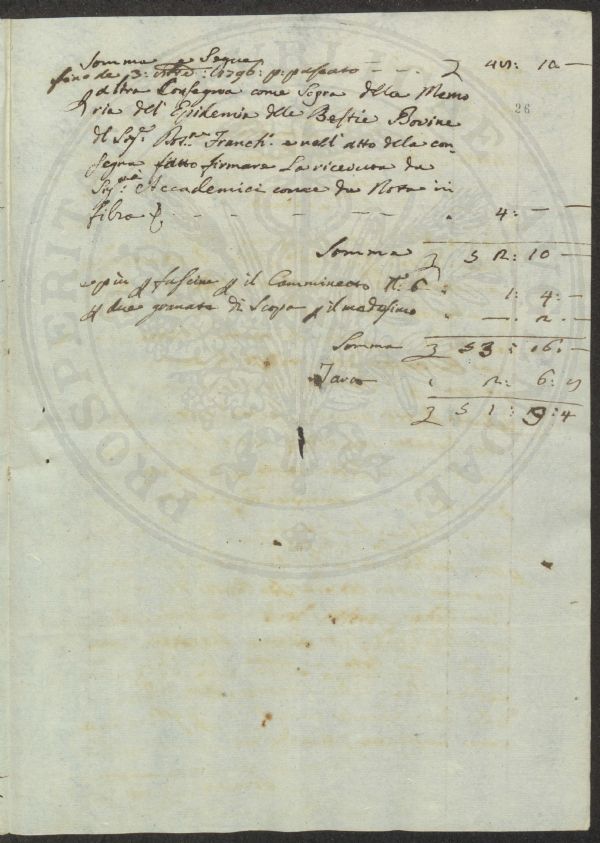 Somma e Segue — — £ 48: 10 —
fino de 3: : 1796: p: passato
Altra Consegna come Sopra della Memo
26
ria dell' Epidemia delle Bestie Bovine
del Sigr. Franchi. e nell' atto della con-
segna fatto firmare La riceuta da
Sigri. Accademici come da Nota in
filza — — — — " 4: — —
Somma £ 52: 10 —
e più p fascine p il Camminetto N: 6 " 1: 4: —
p due granate di Scopa p il medesimo " —: 2. —
Somma £ 53: 16. —
Tara " 2: 6: 8
£ 51: 9: 4